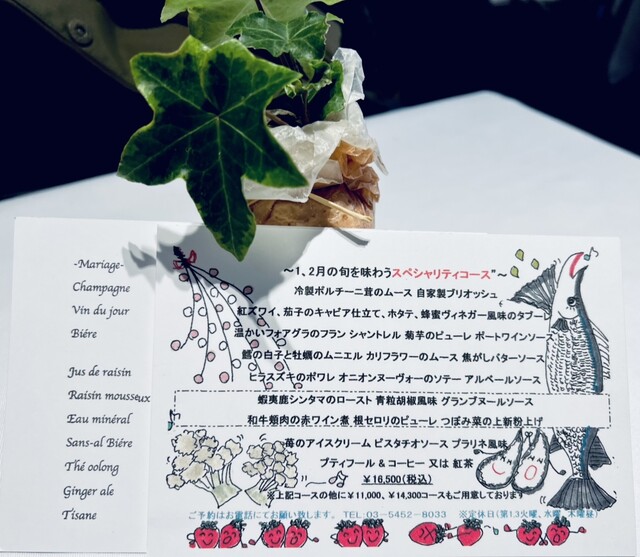 -Mariage-
Champagne
Vin du jour
Biére
Jus de raisin
Raisin mousseux
Eau minéral
Sans-al Biére
Thé oolong
Ginger ale
Tisane
～1、2月の旬を味わうスペシャリティコース"～
冷製ポルチーニ茸のムース 自家製ブリオッシュ
紅ズワイ、茄子のキャビア仕立て、ホタテ、蜂蜜ヴィネガー風味のタブー
温かいフォアグラのフラン シャントレル 菊芋のピューレ ポートワインソー
鱈の白子と牡蠣のムニエル カリフラワーのムース 焦がしバターソース
ヒラスズキのポワレ オニオンヌーヴォーのソテー アルベールソース
蝦夷鹿シンタマのロースト 青粒胡椒風味 グランヴヌールソース
和牛頬肉の赤ワイン煮 根セロリのピューレ つぼみ菜の上新粉上げ
苺のアイスクリーム ピスタチオソース プラリネ風味
プティフール & コーヒー 又は 紅茶
￥16,500(税込)
※上記コースの他に￥11,000、￥14,300コースもご用意しております
ご予約はお電話にてお願い致します。 TEL:03-5452-8033 ※定休日(第1.3火曜、水曜、木曜昼)